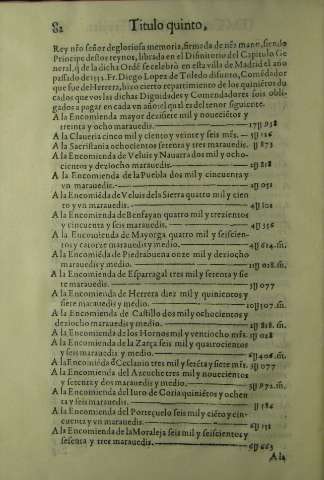 82 Titulo quinto,
Rey nr̃o señor de gloriosa memoria, firmada de nr̃a mano, siendo
Principe destos reynos, librada en el Difinitorio del Capitulo Ge
neral, q̃ de la dicha Ordē se celebrò en esta villa de Madrid el año
passado de 1552. Fr. Diego Lopez de Toledo difunto, Comēdador
que fue de Herrera, hizo cierto repartimiento de los quiniētos du
cados que vos las dichas Dignidades y Comendadores sois obli-
gados a pagar en cada vn año: el qual es del tenor siguiente.
A la Encomienda mayor
treinta y ocho marauedis.
A la Claueria cinco mil y ciento y veinte y seis mrs. 5U 126
A la Sacristania ochocientos setenta y tres marauedis. U 873
A la Encomienda de Veluis y Nauarra dos mil y ocho-
cientos y deziocho marauedis. 2U 818
A la Encomienda de la Puebla dos mil y cincuenta y
vn marauedis. 2U 051
A la Encomiēda de Veluis dela Sierra quatro mil y cien
to y vn marauedis. 4U 101
A la Encomienda de Benfayan quatro mil y trezientos
y cincuenta y seis marauedis. 4U 356
A la Encomienda de Mayorga quatro mil y seiscien-
tos y catorze marauedis y medio. 4U 614.m̃.
A la Encomiēda de Piedrabuena onze mil y deziocho
marauedis y medio. 11U 018.m̃.
A la Encomienda de Esparragal tres mil y setenta y sie
te marauedis. 3U 077
A la Encomienda de Herrera diez mil y quinientos y
siete marauedis y medio. 10U 507.m̃.
A la Encomienda de Castillo dos mil y ochocientos y
deziocho marauedis y medio. 2U 818.m̃.
A la Encomienda de los Hornos mil y ventiocho mrs. 1U 028
A la Encomienda de la Zarça seis mil y quatrocientos
y seis marauedis y medio. 6U 406.m̃.
A la Encomienda d̃ Ceclauin tres mil y setēta y siete mrs. 3U 077
A la Encomienda del Azeuche tres mil y nouecientos
y setenta y dos marauedis y medio. 3U 972.m̃.
A la Encomienda del Iuro de Coria quiniētos y ochen
ta y seis marauedis. U 586
A la Encomienda del Portezuelo seis mil y ciēto y cin-
cuenta y vn marauedis. 6U 151
A la Encomienda de la Moraleja seis mil y seiscientos y
sesenta y tres marauedis. 6U 663
A la